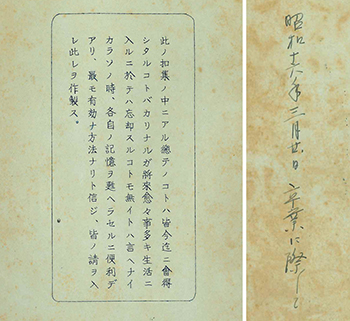 昭和十六年三月廿日 卒業に際して
此ノ扣集ノ中ニアル總テノコトハ皆今迄ニ會得
シタルコトバカリナルガ將來愈々事多キ生活ニ
入ルニ於テハ忘却スルコトモ無イトハ言ヘナイ
カラソノ時、各自ノ記憶ヲ甦ヘラセルニ便利デ
アリ、最モ有効ナ方法ナリト信ジ、皆ノ請ヲ入
レ此レヲ作製ス。